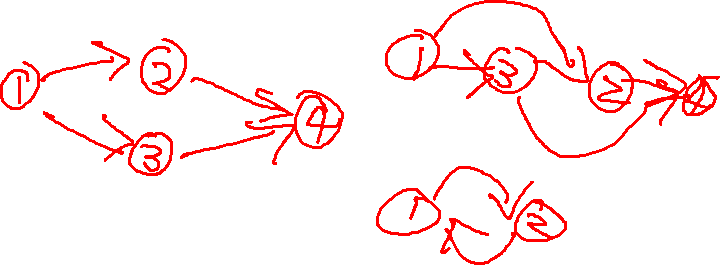 1 2 3 4
1 3 2 4
1 2